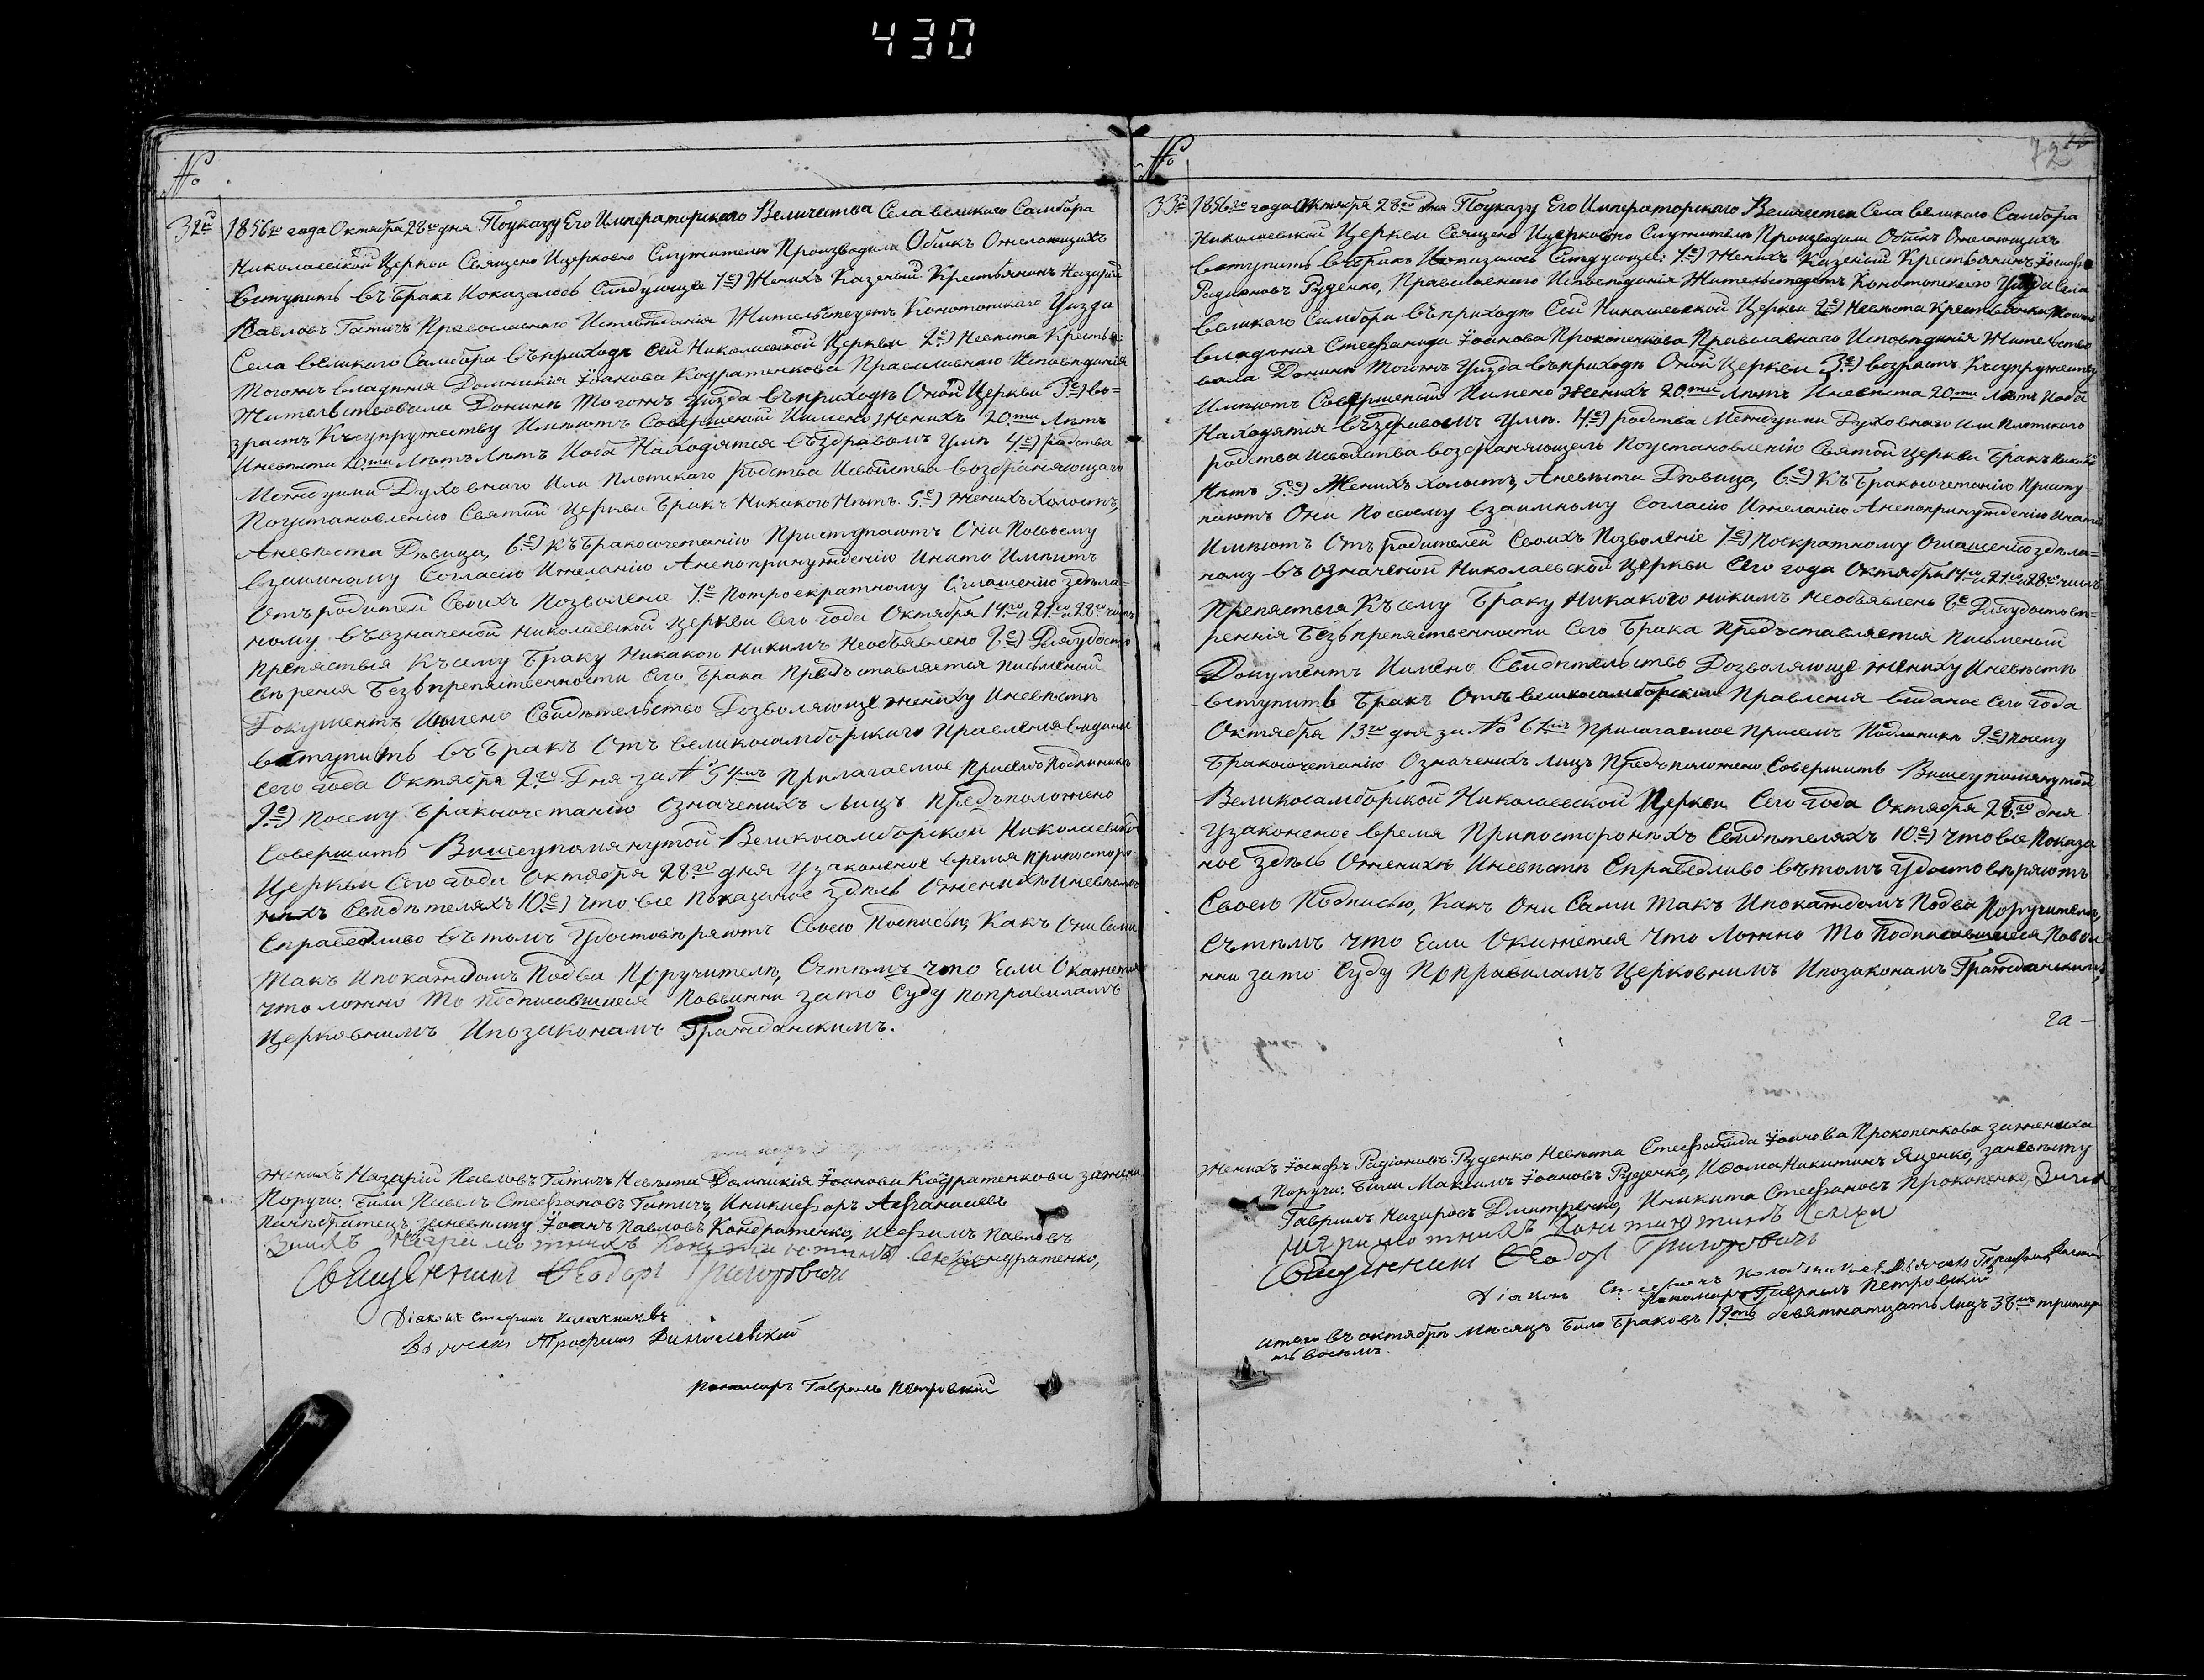 430
№
32е 1856го года Октября 28го дня Поуказу Его Императорскаго Величества Села великого Самбора
Николаевской Церкви Священо Ицерковно Служители Производили Обикъ Ожелающихъ
вступить въ Бракъ Иоказалось Следующее 1е) Женихъ Казеный Крестьянинъ Назарій
Павловъ Гатичъ Православнаго Исповеданія Жительствуетъ Конотопскаго Уизда
Села великого Самбора въприходе сей Николаевской Церкви 2е) Невеста Крестья
Тогожъ владения Домникія Іоанова Кодратенкова Православнаго Исповеданія
Жительствовала Донине Тогожъ Уизда въприходе Оной Церкви 3е) во=
зрастъ Късупружеству Имеютъ Совершеный Имено Женихъ 20.ти Летъ
Иневеста 20ти Летъ Летъ Иоба Находятся въздравомъ Уме 4е) родства
Междуими Духовнаго Или Плотскаго родства Исвойства возбраняющаго
Поустановленію Святой Церкви Бракъ Никакого Нетъ. 5е) Женихъ Холостъ,
Аневеста Девица, 6е) Къ Бракосочетанію Приступаютъ Они Посвоему
взаимному Согласію Ижеланію Анепопринужденію Инато Имеютъ
Отъ родителей Своихъ Позволеніе 7е Потроекратному Оглашенію здела-
ному възначеной Николаевской Церкви Сего года Октября 14го и 21го и 28го чиселъ
Препяствия Късему Браку Никакого Никимъ Необъявлено 8е) Дляудосто
верения Безъпрепяственности Сего Брака Предъставляется Писменой
Документъ Имено Свидетельство Дозволяюще жениху Иневесте
вступить въ Бракъ Отъ великосамборскаго Правления виданое
Сего года Октября 2.го Дня за № 5 Прилагаемое Присемъ Подлиникъ
9.е) Посему Бракосочетанію Означенихъ Лицъ Предъположено
Совершить Вишеупомянутой Великосамборской Николаевской
Церкви Сего года Октября 28.го дня Узаконеное время Припосторо
нихъ Свидетеляхъ 10.е) Что все Показаное здесь Оженихе Иневесте
Справедливо въ томъ Удостоверяютъ Своею Подписью, Какъ Они Сами
Такъ Ипокаждомъ Подва Поручителя, Стемъ что Если Окажется
что ложно То Подписавшиеся Повинни зато Суду поправиламъ
Церковнимъ Ипозаконамъ Гражданскимъ.
Женихъ Назарій Павловъ Гатичъ Невеста Домникія Іоанова Кодратенкова зажениха
Поручи: Били Павелъ Стефановъ Гатичъ, Иникифоръ Афанасиевъ
заневесту Іоанъ Павловъ Кондратенко, Иефимъ Павловъ
Кондратенко,
Священникъ Феодоръ Григоровичъ
Діаконъ Стефанъ Калачниковъ
Дячекъ Трофимъ Данилевскій
Пономаръ Гавріилъ Петровскій
72
№
33е 1856го года Октября 28го Дня Поуказу Его Императорскаго Величества Села Великаго Самбора
Николаевской Церкви Священо Ицерковно Служители Производили Обикъ Ожелающихъ
вступить вбракъ Иоказалось Следующее: 1е) Женихъ Казеный Крестьянинъ Іосифъ
Радионовъ Руденко, Православнаго Исповеданія Жительствуетъ Конотопскаго Уизда Села
великаго Самбора въприходе Сей Николаевской Церкви 2е) Невеста Крестьянка
владения Стефанида Іоанова Прокопенкова Православнаго Исповеданія Жительство
вала Донине Тогожъ Уизда въприходе Оной Церкви 3е) возрастъ Късупружеству
Имеютъ Совершеный Имено Женихъ 20ти летъ Иневеста 20ти Летъ Иоба
Находятся въздравомъ Уме. 4е) родства Междуими Духовнаго Или Плотскаго
родства Исвойства возбраняющаго Поустановленію Святой Церкви Бракъ Никакого
Нетъ 5е) Женихъ Холостъ, Аневеста Девица, 6е) Къ Бракосочетанію Присту
паютъ Они Посвоему взаимному Согласію Ижеланію Анепопринужденію Инато
Имеютъ Отъ родителей Своихъ Позволеніе 7е) Поскратному Оглашенію здела=
ному въ означеной Николаевской Церкви Сего года Октября 14го и 21го и 28го чиселъ
Препяствія Късему Браку Никакого никимъ Необъявлено 8е Дляудостове-
ренія Безъпрепяственности Сего Брака Предъставляется Писменый
Документъ Имено Свидетельство Дозволяюще жениху Иневесте
вступить Бракъ Отъ великосамборскаго Правления виданое Сего года
Октября 13го дня за № 61мъ Прилагаемое Присемъ Подлиникъ 9е) Посему
Бракосочетанію Означенихъ Лицъ Предъположено Совершить Вишеупомянутой
Великосамборской Николаевской Церкви Сего года Октября 28.го дня
Узаконеное время Припостороннихъ Свидетеляхъ 10е) Что все Показа
ное здесь Оженихе Иневесте Справедливо вътомъ Удостоверяютъ
Своею Подписью, Какъ Они Сами Такъ Ипокаждомъ Подва Поручителя,
Сътемъ что Если Окажется что Ложно То Подписавшиеся Пови
нни зато Суду Поправиламъ Церковнимъ Ипозаконамъ Гражданскимъ,
Женихъ Іосифъ Радіоновъ Руденко Невеста Стефанида Іоанова Прокопенкова зажениха
Поручи: Били Максимъ Іоановъ Руденко, Ифома Никитинъ Яценко, заневесту
Гавриилъ Назаровъ Дмитренко, Иникита Стефановъ Прокопенко,
Священникъ Феодоръ Григоровичъ
Діаконъ Стефанъ Калачниковъ Дячекъ Трофимъ
Пономаръ Гавріилъ Петровскій
Итого въ октябре месяце Било Браковъ 19ть девятнатцать Лицъ 38мъ тритца
ть восемъ.